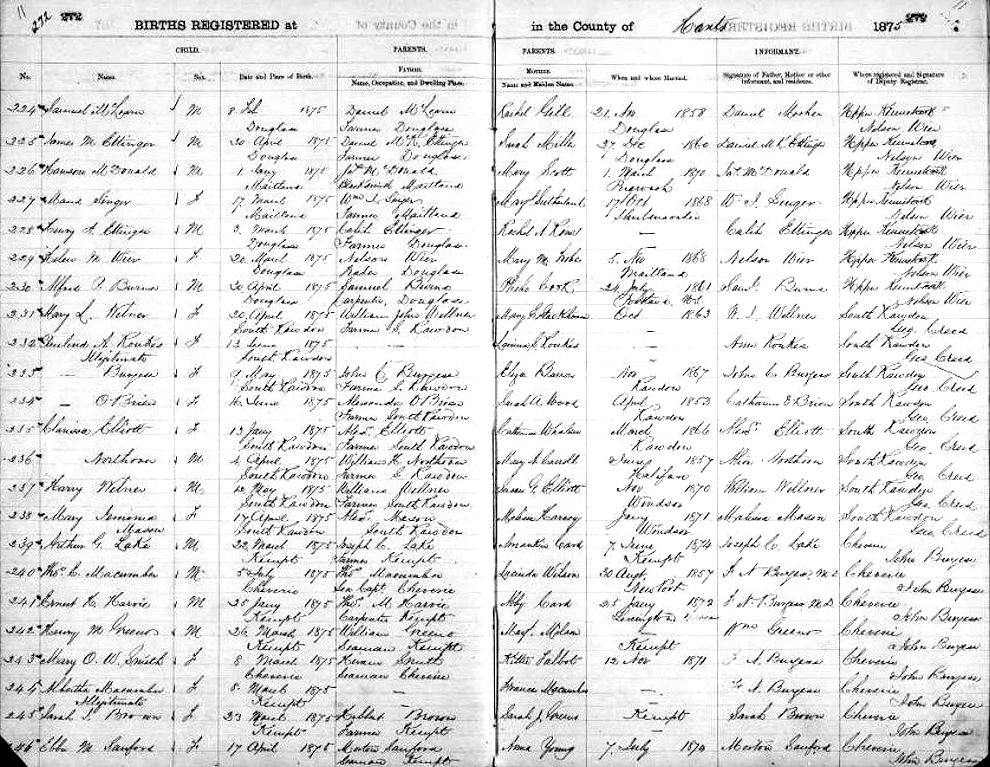 11 272 272 BIRTHS REGISTERED at in the County of Hants 1875 272 11
CHILD. PARENTS. PARENTS. INFORMANT.
No. Name. Sex. Date and Place of Birth. Father. Name, Occupation, and Dwelling Place. Mother. Name and Maiden Name. When and whom Married. Signature of Father, Mother or other informant, and residence. Where registered and Signature of Deputy Registrar.
224 Samuel M 8 Feb 1875 Daniel Rachel Gill 21 Nov 1858 Daniel Upper Kennetcook
Douglass Farmer Douglass Douglass Nelson Wier
225 James M. Ettinger M 20 April 1875 Daniel M K Ettinger Sarah 27 Dec 1860 Daniel M K Ettinger Upper Kennetcook
Douglass Farmer Douglass Douglass Nelson Wier
226 McDonald M 1 Jany 1875 Jas McDonald Mary Scott 1 March 1870 Jas McDonald Upper Kennetcook
Maitland Blacksmith Maitland Nelson Wier
227 Maud Singer F 17 March 1875 Wm Singer Mary 17 Oct 1868 W. Singer Upper Kennetcook
Maitland Farmer Maitland Nelson Wier
228 Henry A Ettinger M 3 March 1875 Caleb Ettinger Rachel A — Caleb Ettinger Upper Kennetcook
Douglass Farmer Douglass Nelson Wier
229 M Wier F 20 April 1875 Nelson Wier Mary M. 5 Nov 1868 Nelson Wier Upper Kennetcook
Douglass Douglass Maitland Nelson Wier
230 Alfred P. Burns M 30 April 1875 Samuel Burns Phebe Cook 24 July 1861 Saml Burns Upper Kennetcook
Douglass Carpenter, Douglass Nelson Wier
231 Mary L. Welner F 20 April 1875 William John Wellner Mary E Oct 1863 W. J. Wellner South Rawdon
South Rawdon Farmer S Rawdon Geo Creed
232 A. F 13 June 1875 — — South Rawdon
Illegitimate South Rawdon — — Geo Creed
233 — Burgess F 9 May 1875 John C Burgess Eliza Nov 1867 John C Burgess South Rawdon
South Rawdon Farmer S Rawdon Rawdon Geo Creed
234 — O'Brien F 16 June 1875 Alexander O'Brien Sarah A. Wood April 1853 South Rawdon
Farmer South Rawdon Rawdon Geo Creed
235 Clarissa Elliott F 13 Jany 1875 Alexr Elliott Catherine Whalen March 1866 Alexr Elliott South Rawdon
South Rawdon Farmer South Rawdon Rawdon Geo Creed
236 Northover M 4 April 1875 William H Northover Mary A Carroll June 1857 South Rawdon
South Rawdon Farmer S Rawdon Halifax Geo Creed
237 Harry Welner M 12 May 1875 William Wellner Susan G. Elliott Nov 1870 William Wellner South Rawdon
South Rawdon Farmer South Rawdon Windsor Geo Creed
238 Mary F 17 April 1875 Alexr Mason Malvina Harvey Jany 1871 Malvina Mason South Rawdon
Mason South Rawdon South Rawdon Windsor Geo Creed
239 Arthur G. Lake M 22 March 1875 Joseph C. Lake Card 7 June 1874 Joseph C Lake Cheverie
Kempt Farmer Kempt Kempt John Burgess
240 Thos. E. Macumber M 5 July 1875 Thos Macumber Wilson 30 Augt 1857 F N Burgess M D Cheverie
Cheverie Sea Capt Cheverie Newport John Burgess
241 Ernest H. Harvie M 25 Jany 1875 Thos. M Harvie Abby Card 25 Jany 1872 F N Burgess M D Cheverie
Kempt Carpenter Kempt John Burgess
242 Henry M Greeno M 26 March 1875 William Greeno Mary — Wm Greeno Cheverie
Kempt Seaman Kempt Kempt John Burgess
243 Mary O. W. Smith F 8 March 1875 Smith Talbot 12 Nov 1871 F N. Burgess Cheverie
Cheverie Seaman Cheverie John Burgess
244 Alberta Macumber F 5 March 1875 — Frances Macumber — F N. Burgess Cheverie
Illegitimate Kempt John Burgess
245 Sarah L Brown F 23 March 1875 Brown Sarah J. Kempt Sarah Brown Cheverie
Kempt Farmer Kempt John Burgess
246 M Sanford F 17 April 1875 Morton Sanford Anna Young 7 July 1874 Morton Sanford Cheverie
Seaman Kempt John Burgess